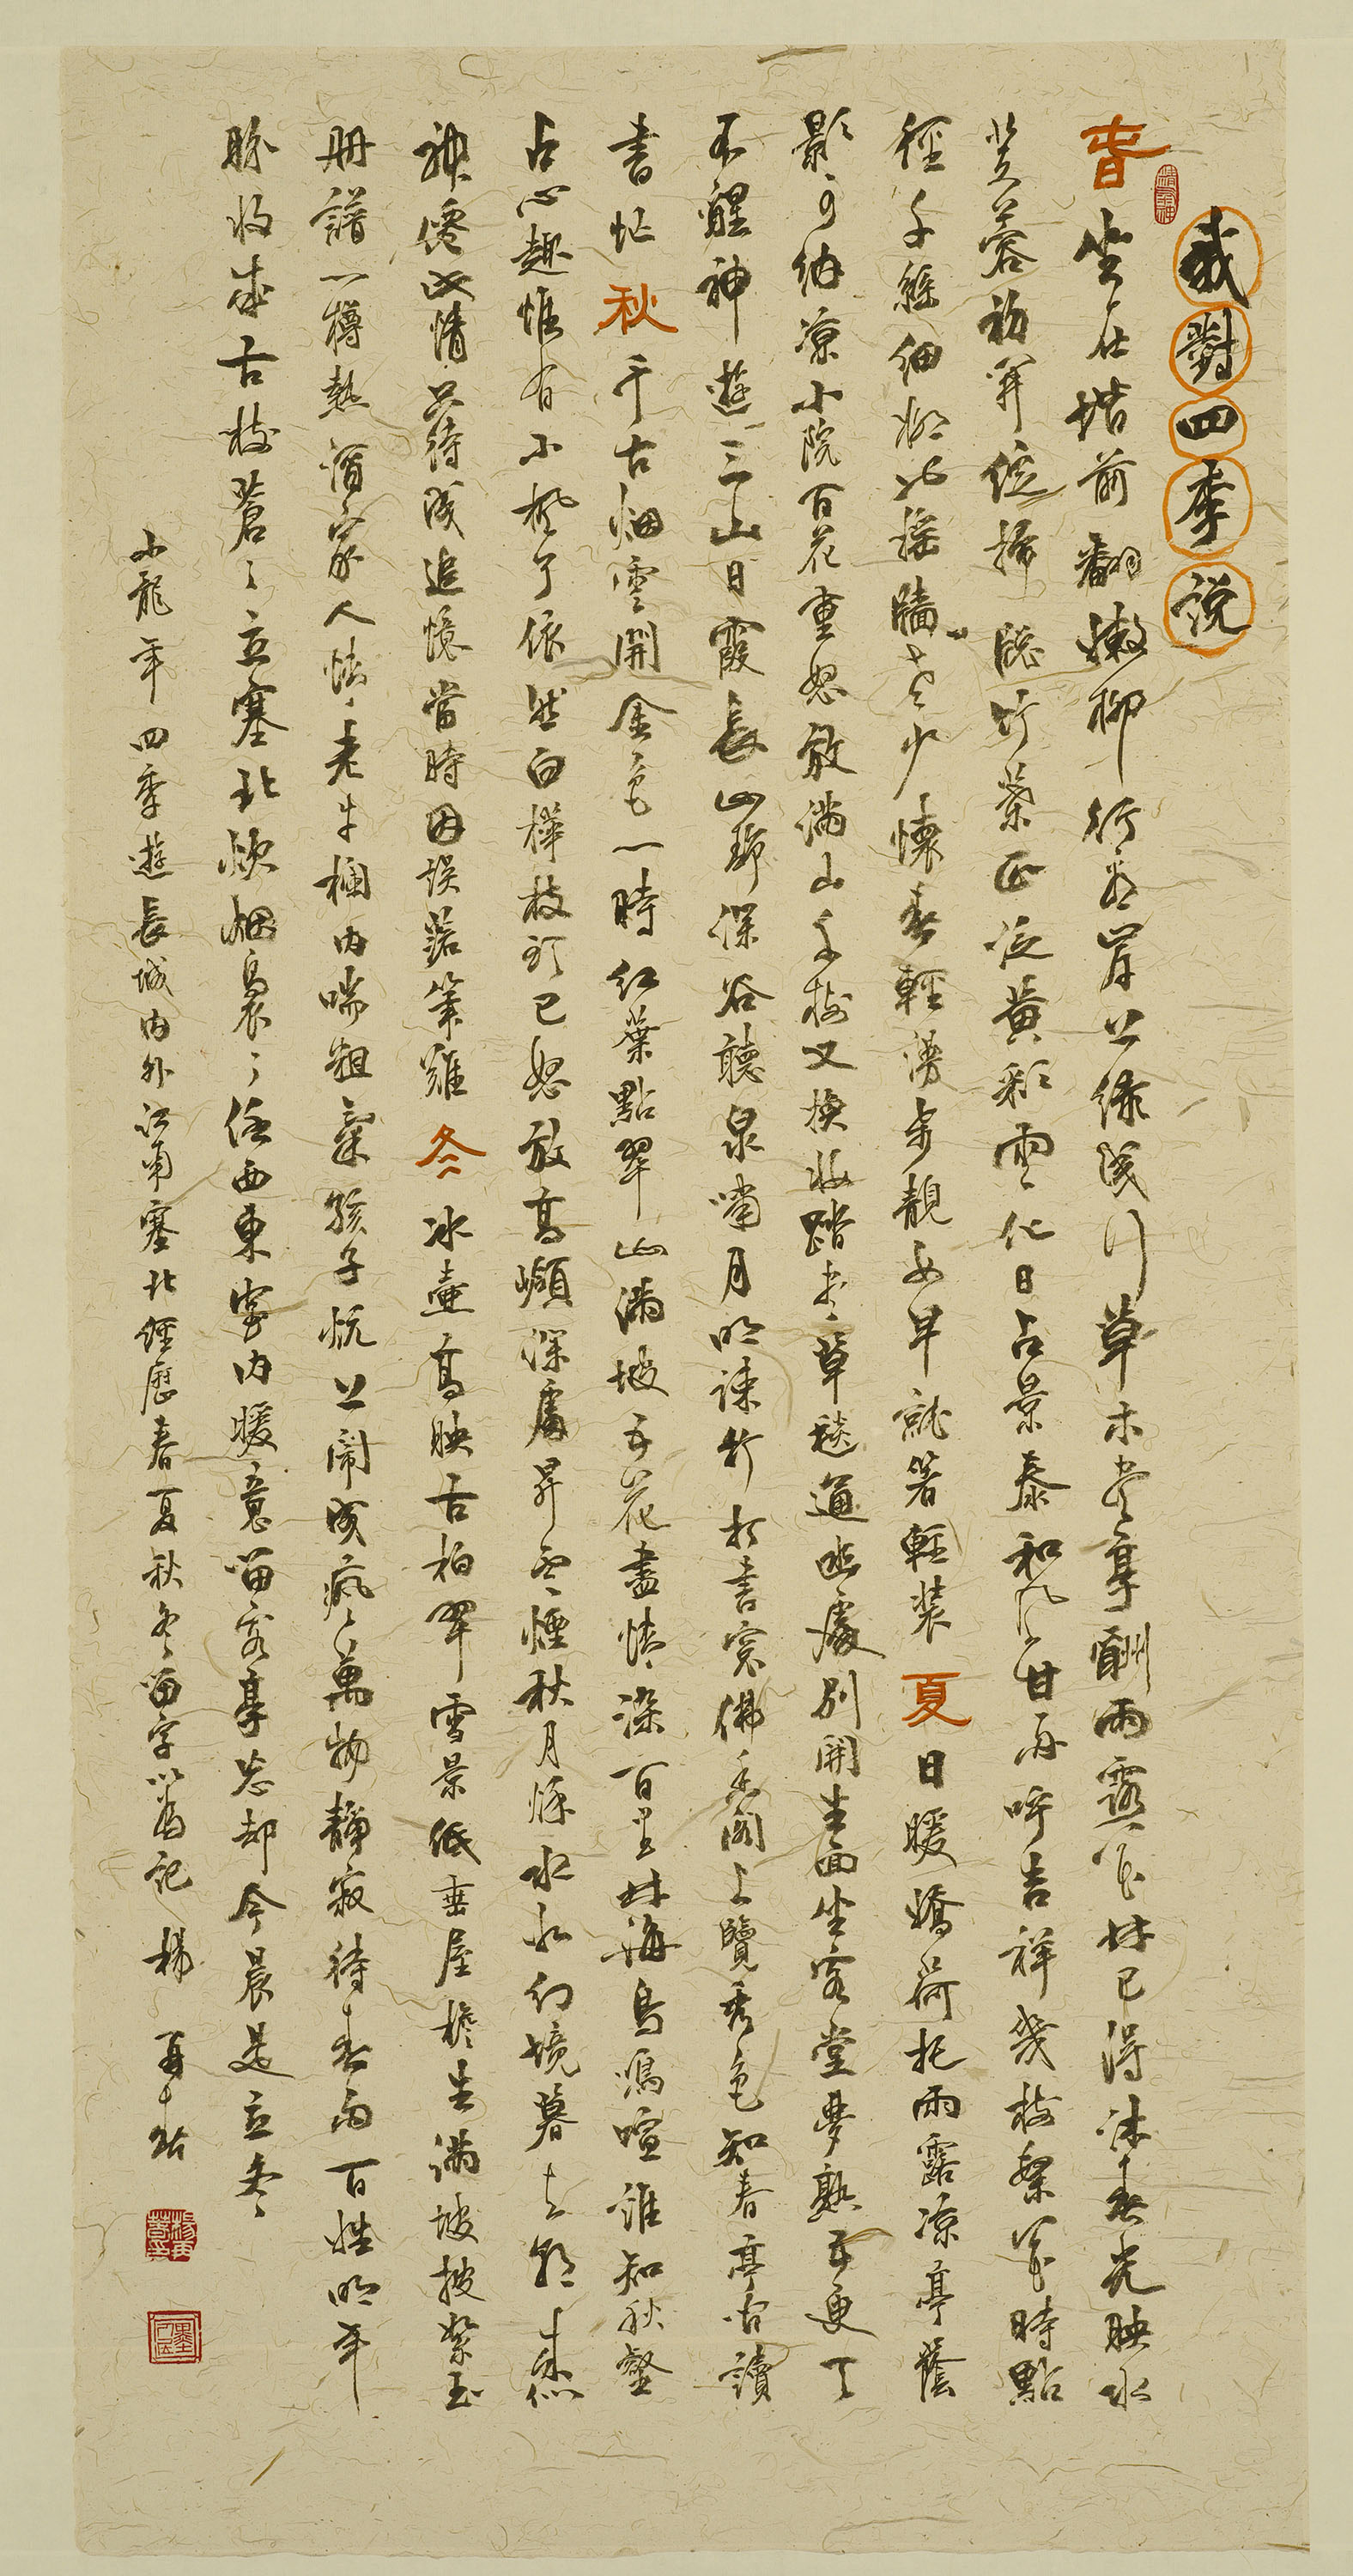 我對四季说
春坐在堦前翻嫩柳行兩岸上綠淺草木盡享酬雨露花林已得沐春光映水
芙蓉初笄從掃院竹葉正泛黃彩雲化日占景泰和風甘雨呼吉祥幾枝繁花時點
徑千絲細柳比摇牆老少懷春輕湯步靚女早就著輕裝夏日暖嬌荷托雨露涼亭蔭
影可納凉小院百花重怒放满山千樹又换妝踏青草毯通幽處别開生面坐客堂夢熟五更了
不醒神遊三山日霞長山野深谷聽泉嘯月明課竹打書窓佛香閣上覽秀色知春亭内讀
書忙秋千古烟雲開金色一時紅葉點翠山满坡五花盡情染百里林海鳥鳴喧誰知秋壑
占心趣惟有小楓了依然白樺枝頭已怒放高巔深處昇雲煙秋月綠水水幻境暮去朝来似
神僊此情若待成追憶當時因誤落筆難冬冰壺高映古柏翠雪景低垂屋檐生满坡披絮玉
册譜一樽熱酒家人情老牛欄内喘粗氣孩子炕上鬧成瘋萬物靜寂待春雨百姓明年
盼收成古樹蒼蒼立塞北炊烟裊裊任西東室内暖意留客享忘却今晨是立冬
小龍年四季遊長城内外江南塞北經歷春夏秋冬留字以爲記楊再春